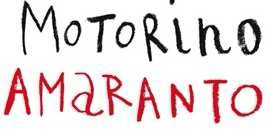 MOTORiNO
AMaRANTO